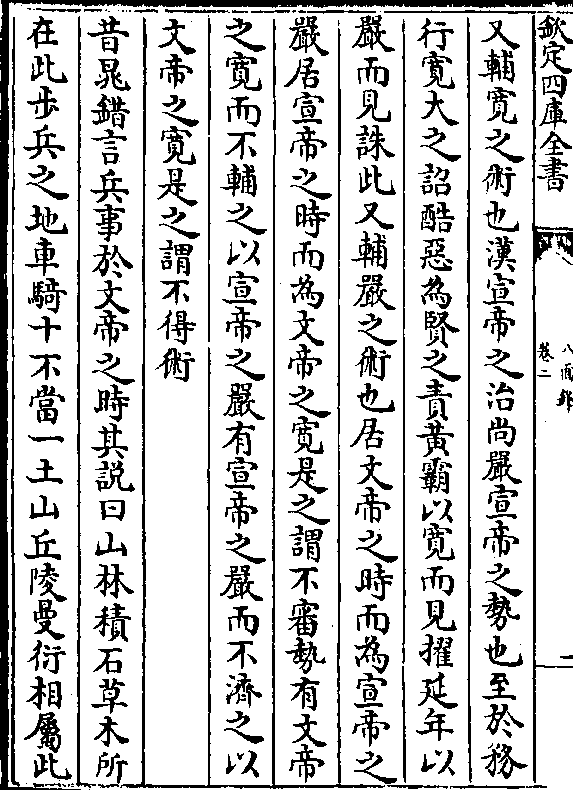 欽定四庫全書
卷二
又輔寛之術也漢宣帝之治尚嚴宣帝之勢也至於務
行寛大之詔酷惡為賢之責黄霸以寛而見擢延年以
嚴而見誅此又輔嚴之術也居文帝之時而為宣帝之
嚴居宣帝之時而為文帝之寛是之謂不審勢有文帝
之寛而不輔之以宣帝之嚴有宣帝之嚴而不濟之以
文帝之寛是之謂不得術
昔晁錯言兵事於文帝之時其説曰山林積石草木所
在此歩兵之地車騎十不當一土山丘陵曼衍相屬此